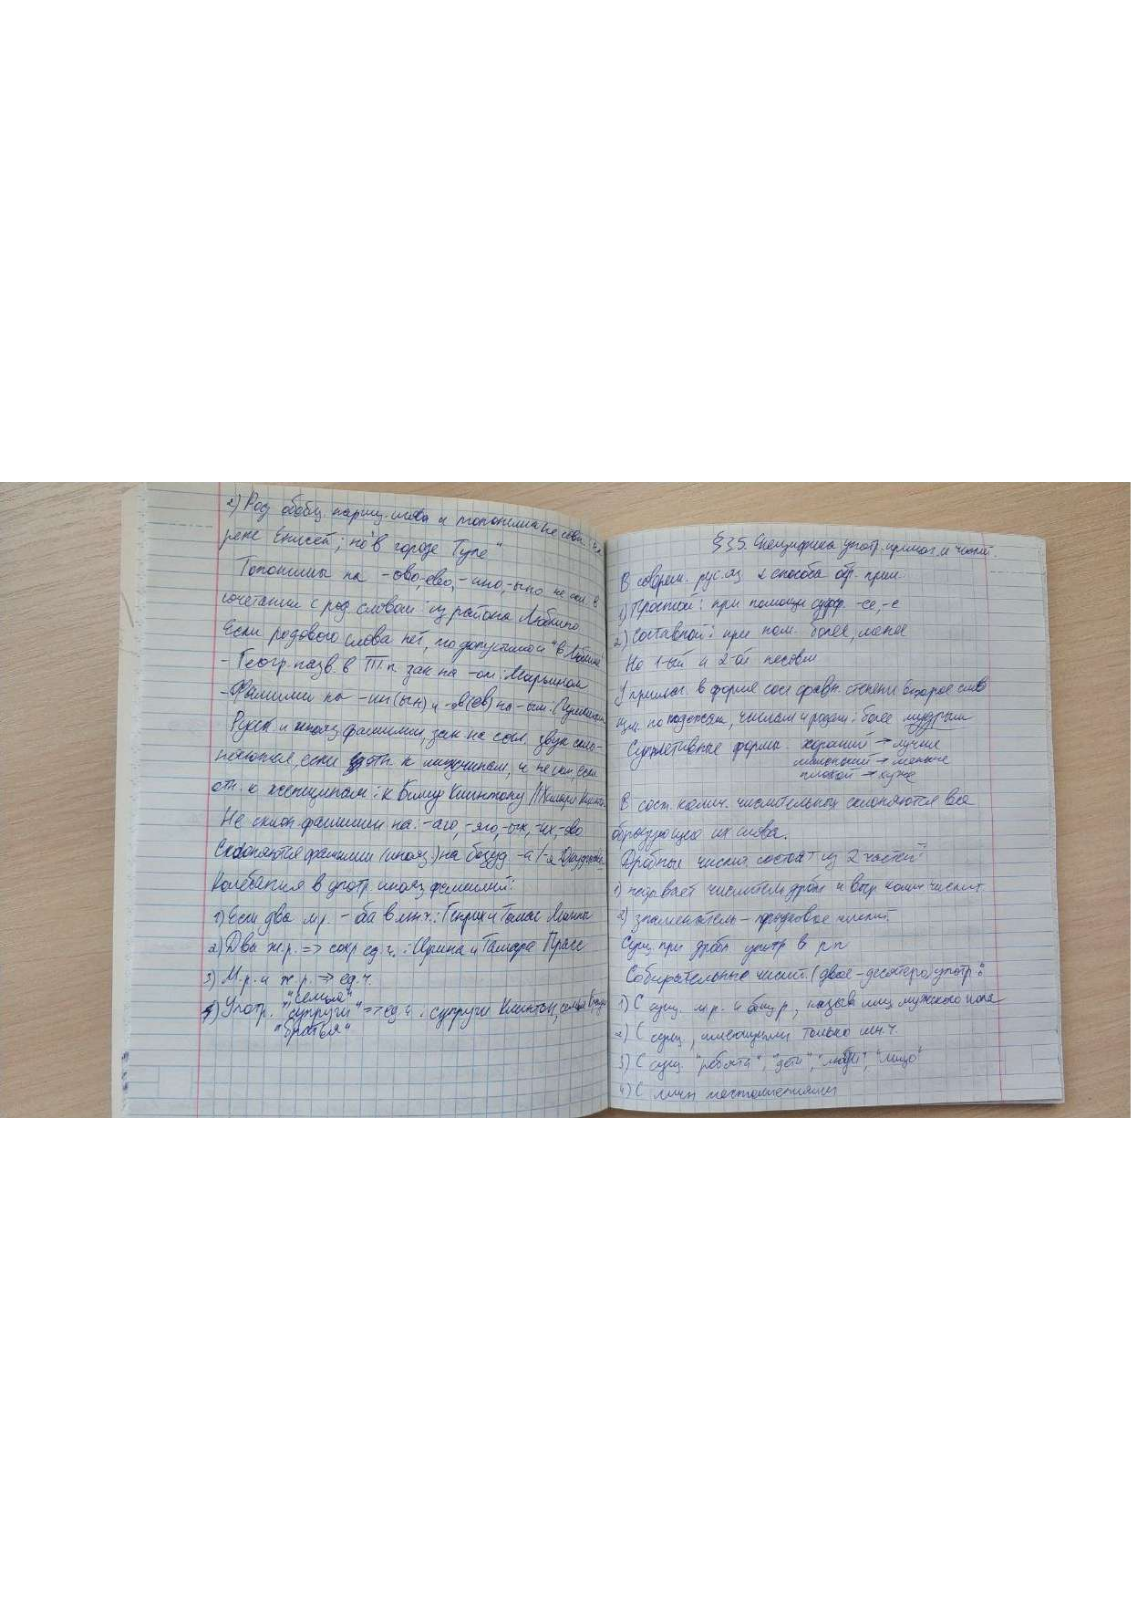 2) Род обобщ. нариц. слова и топонима не совп.: на
реке Енисей; не в городе Туле"
Топонимы на -ово,-ево,-ино,-ыно не скл. в
сочетании с род. словом: из района Люблино
Если родового слова нет, то допустимо и "в Люблине"
- Геогр. назв. в Тп. зак на -ом: Марьином
- Фамилии на -ин(ын) и -ов(ев) на -ым:
Русск и иноязфамилии, зак на согл. звук скло-
няются, если отн. к мужчинам, и не скл, если
отн. к женщинам: к Биму Клинтону //
Не склон фамилии на: -аго, -яго, -ых, -их, -ово
Склоняются фамилии (иняз.) на безуд -а/-я
Колебания в употр. инояз фамилий:
1) Если два м.р. - оба в мн.ч.: Генрих и Томас Манны
2) Два ж.р. => сохр ед. ч. : Ирина и Тамара Пресс
3) М.р. и ж.р. => ед.ч.
4) Употр. "семья" "супруги" "братья" => ед.ч : супруги Клинтон, семья
§35. Специфика употр. прилаг. и числит.
В соврем. рус.яз 2 способа обр. прил.
1) Простой: при помощи суфф. -ее,-е
2) Составной: при пом. более, менее
Но 1-ый и 2-ой несовм
У прилаг. в форме сос сравн. степени второе слово
изм. по падежам, числам и родам: более мудрым
Супплетивные формы: хороший → лучше
маленький → меньше
плохой → хуже
В сост. колич. числительных склоняются все
образующие их слова.
Дробные числа состоят из 2 частей:
1) называет числитель дроби и выр колич числит.
2) знаменатель - порядковое числит.
Сущ. при дробях употр в р.п
Собирательные числит. (двое-десятеро) употр.:
1) С сущ. м.р. и общ.р., назыв лиц мужского пола
2) С сущ, имеющими только мн.ч.
3) С сущ. "ребята", "дети", "люди", "лицо"
4) С личн местоимениями